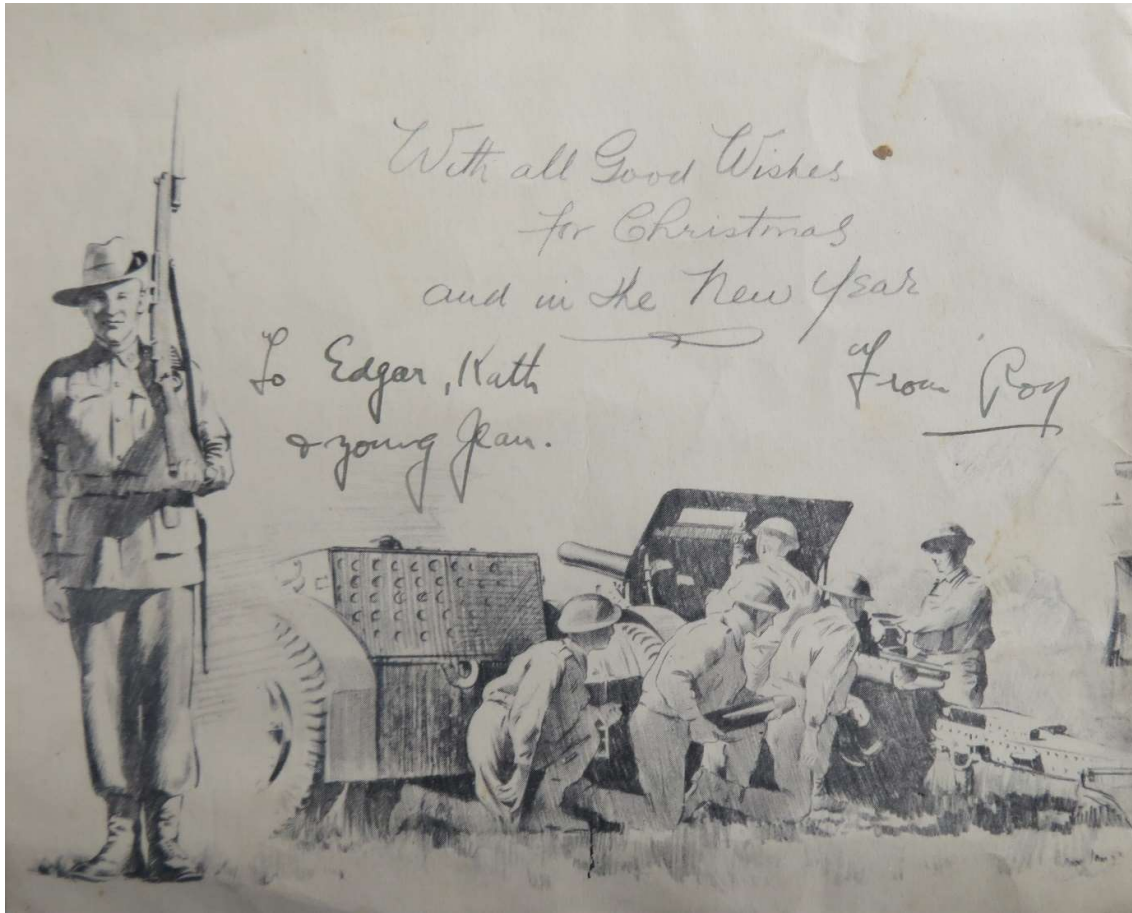 With all Good Wishes
for Christmas
and in the New Year
To Edgar, Kath
& young Jean.
From Roy